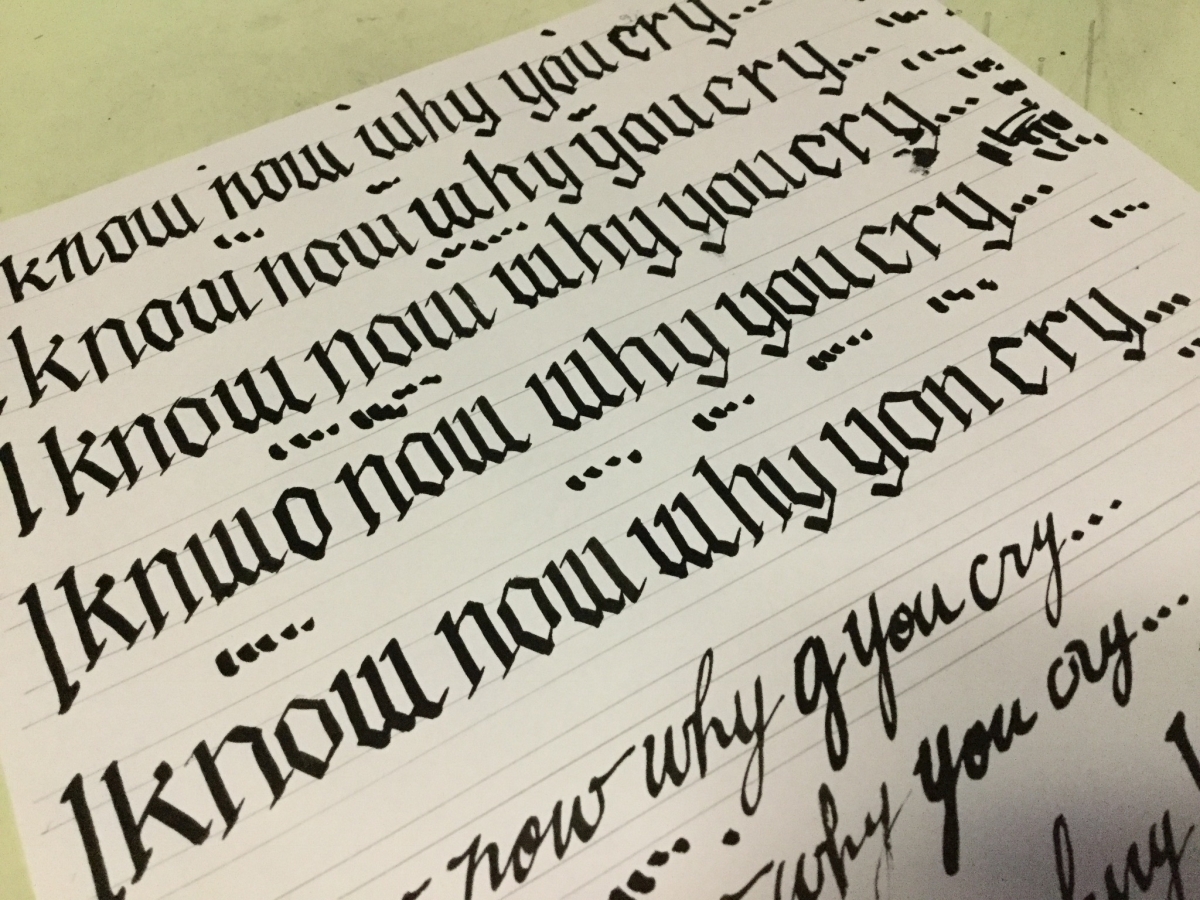 know now why you cry...
know now why you cry...
I know now why you cry...
I knwo now why you cry...
I know now why yon cry...
now why g you cry...
why you cry...